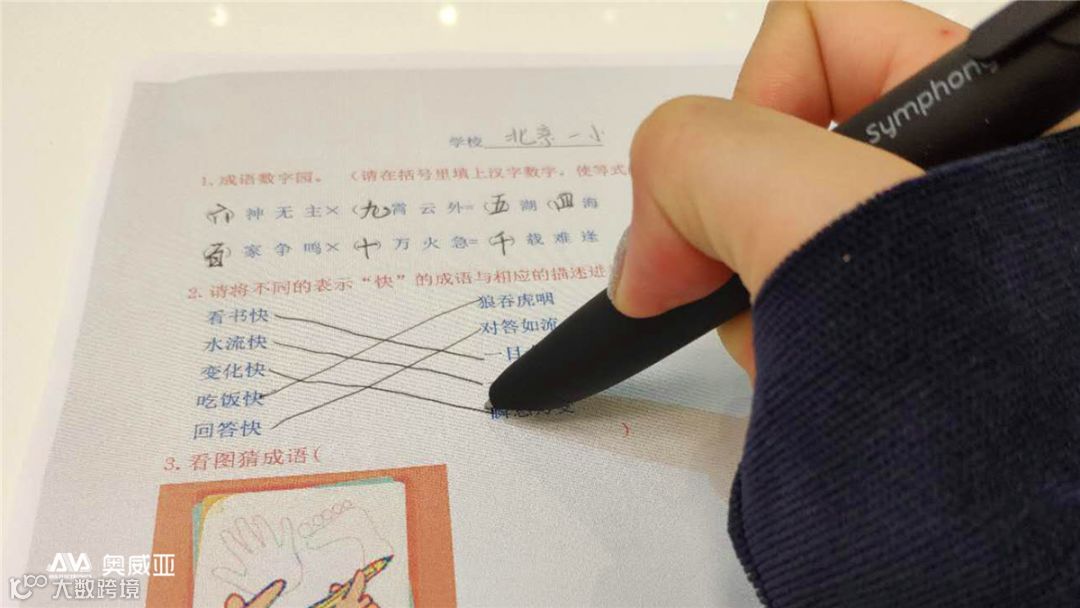 symphony
学校 北京一小
1.成语数字园。 (请在括号里填上汉字数字，使等式
(六)神无主×(九)霄云外=(五)湖(四)海
(百)家争鸣×(十)万火急=(千)载难逢
2.请将不同的表示“快”的成语与相应的描述进
看书快 狼吞虎咽
水流快 对答如流
变化快 一目
吃饭快
回答快 瞬息
3.看图猜成语( )
AVA 奥威亚
大数跨境